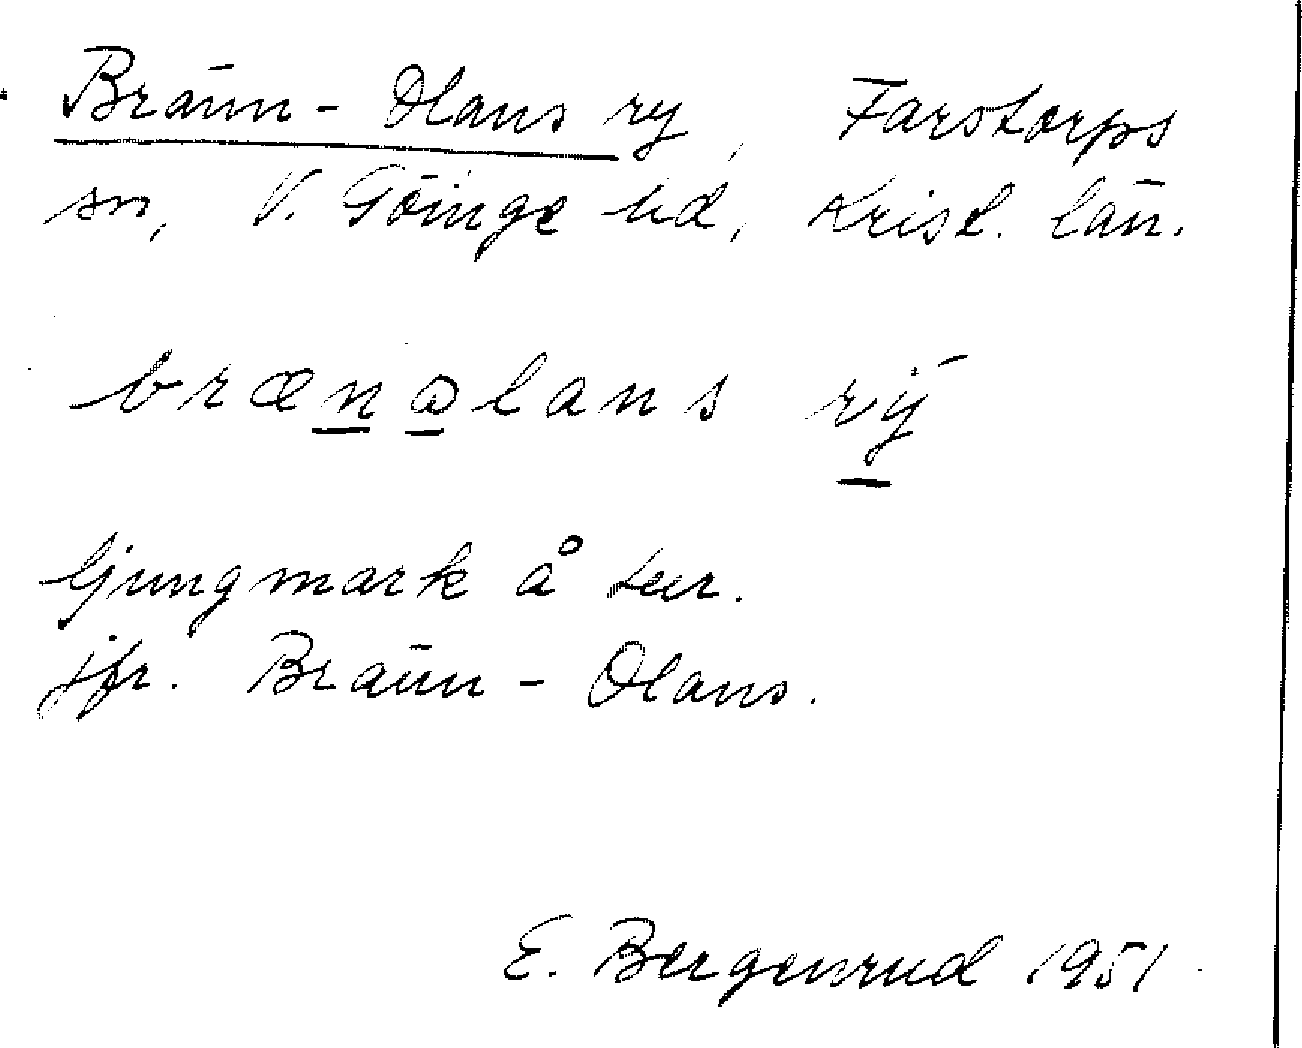 Bränn-Olans ry, Farstorps
sn, V. Göinge hd, Krist. län.
brænωlans rý
ljungmark å ter.
jfr. Bränn-Olans.
E. Bergenrud 1951